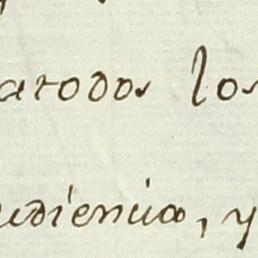 atodos los
udiencia, y